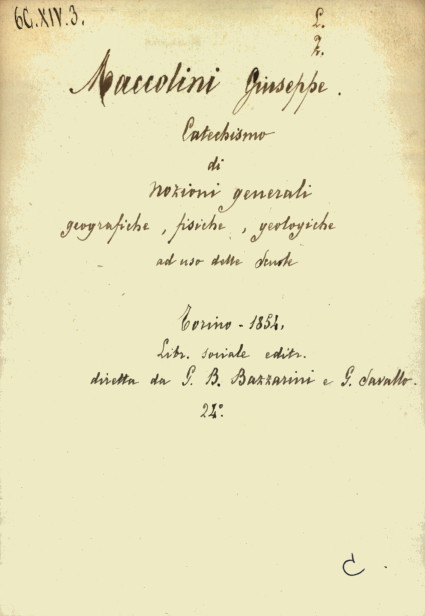 60.XIV.3.
L.
2.
Maccolini Giuseppe.
Catechismo
di
nozioni generali
geografiche, fisiche, geologiche
ad uso delle Scuole
Torino - 1854.
Libr. sociale editr.
diretta da G. B. Bazzarini e G. Savallo.
24°.
C